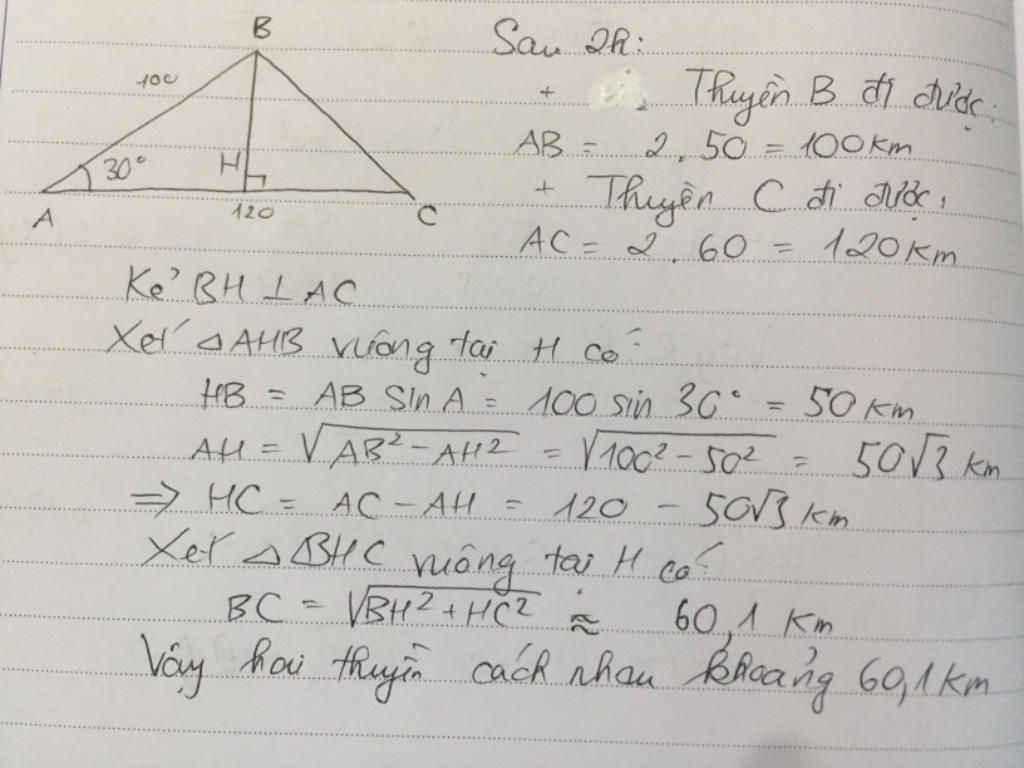 B
100
30°
H
A
120
C
Sau 2h:
+ Thuyền B đi được:
AB = 2.50 = 100 km
+ Thuyền C đi được:
AC = 2.60 = 120 km
Kẻ BH ⊥ AC
Xét △AHB vuông tại H có:
HB = AB sin A = 100 sin 30° = 50 km
AH = √(AB² - AH²) = √(100² - 50²) = 50√3 km
⇒ HC = AC - AH = 120 - 50√3 km
Xét △BHC vuông tại H có:
BC = √(BH² + HC²) ≈ 60,1 km
Vậy hai thuyền cách nhau khoảng 60,1 km